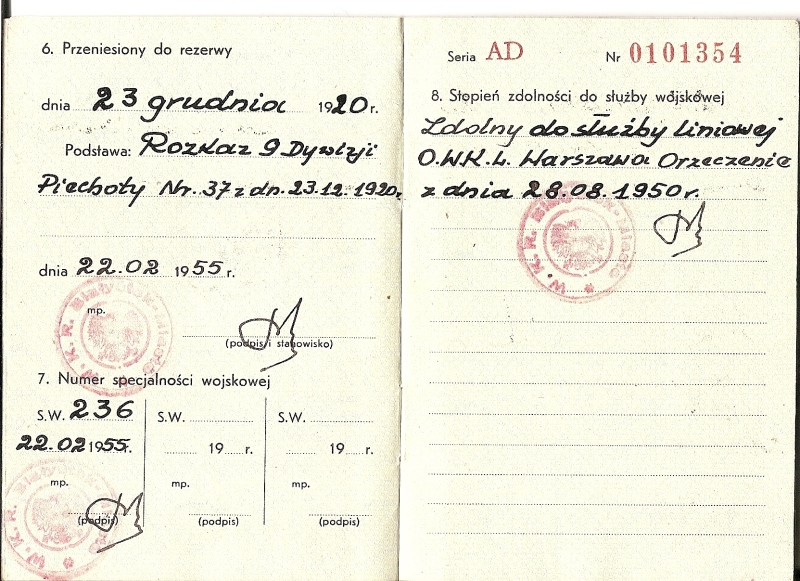 6. Przeniesiony do rezerwy
dnia 23 grudnia 1920 r.
Podstawa: Rozkaz 9 Dywizji
Piechoty Nr. 37 z dn. 23.12.1920r.
dnia 22.02 1955 r.
mp.
(podpis i stanowisko)
W. K. R. Białystok-Miasto
7. Numer specjalności wojskowej
S.W. 236
22.02 1955r.
mp.
(podpis)
W. K. R.
S.W.
19 r.
mp.
(podpis)
S.W.
19 r.
mp.
(podpis)
Seria AD Nr 0101354
8. Stopień zdolności do służby wojskowej
Zdolny do służby liniowej
O.WK.L. Warszawa Orzeczenie
z dnia 28.08.1950 r.
W. K. R. Białystok-Miasto